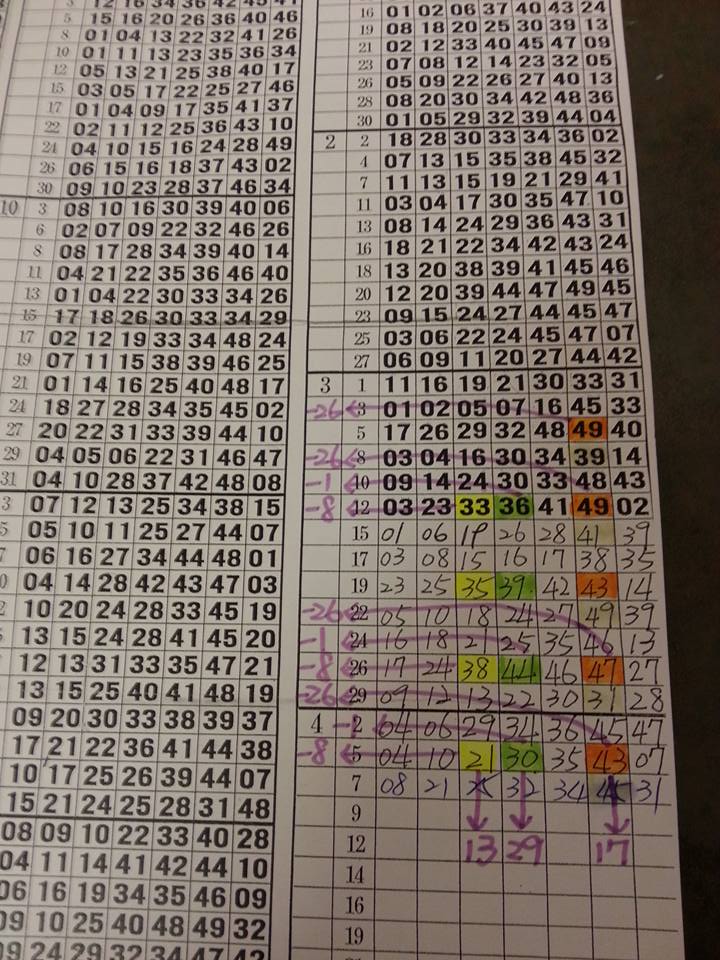 12 16 34 36 42 45 41
5 15 16 20 26 36 40 46
8 01 04 13 22 32 41 26
10 01 11 13 23 35 36 34
12 05 13 21 25 38 40 17
15 03 05 17 22 25 27 46
17 01 04 09 17 35 41 37
22 02 11 12 25 36 43 10
24 04 10 15 16 24 28 49
26 06 15 16 18 37 43 02
30 09 10 23 28 37 46 34
10 3 08 10 16 30 39 40 06
6 02 07 09 22 32 46 26
8 08 17 28 34 39 40 14
11 04 21 22 35 36 46 40
13 01 04 22 30 33 34 26
15 17 18 26 30 33 34 29
17 02 12 19 33 34 48 24
19 07 11 15 38 39 46 25
21 01 14 16 25 40 48 17
24 18 27 28 34 35 45 02
27 20 22 31 33 39 44 10
29 04 05 06 22 31 46 47
31 04 10 28 37 42 48 08
3 07 12 13 25 34 38 15
5 05 10 11 25 27 44 07
7 06 16 27 34 44 48 01
0 04 14 28 42 43 47 03
2 10 20 24 28 33 45 19
13 15 24 28 41 45 20
12 13 31 33 35 47 21
13 15 25 40 41 48 19
09 20 30 33 38 39 37
17 21 22 36 41 44 38
10 17 25 26 39 44 07
15 21 24 25 28 31 48
08 09 10 22 33 40 28
04 11 14 41 42 44 10
06 16 19 34 35 46 09
09 10 25 40 48 49 32
09 24 29 32 34 47 42
16 01 02 06 37 40 43 24
19 08 18 20 25 30 39 13
21 02 12 33 40 45 47 09
23 07 08 12 14 23 32 05
26 05 09 22 26 27 40 13
28 08 20 30 34 42 48 36
30 01 05 29 32 39 44 04
2 2 18 28 30 33 34 36 02
4 07 13 15 35 38 45 32
7 11 13 15 19 21 29 41
11 03 04 17 30 35 47 10
13 08 14 24 29 36 43 31
16 18 21 22 34 42 43 24
18 13 20 38 39 41 45 46
20 12 20 39 44 47 49 45
23 09 15 24 27 44 45 47
25 03 06 22 24 45 47 07
27 06 09 11 20 27 44 42
3 1 11 16 19 21 30 33 31
-26 3 01 02 05 07 16 45 33
5 17 26 29 32 48 49 40
-26 8 03 04 16 30 34 39 14
-1 10 09 14 24 30 33 48 43
-8 12 03 23 33 36 41 49 02
15 01 06 19 26 28 41 39
17 03 08 15 16 17 38 35
19 23 25 35 39 42 43 14
-26 22 05 10 18 24 27 49 39
-1 24 16 18 21 25 35 46 13
-8 26 17 24 38 44 46 47 27
-26 29 09 12 13 22 30 31 28
4 -1 2 04 06 29 34 36 45 47
-8 5 04 10 21 30 35 43 07
7 08 21 32 34 45 31
9
12 13 29 17
14
16
19